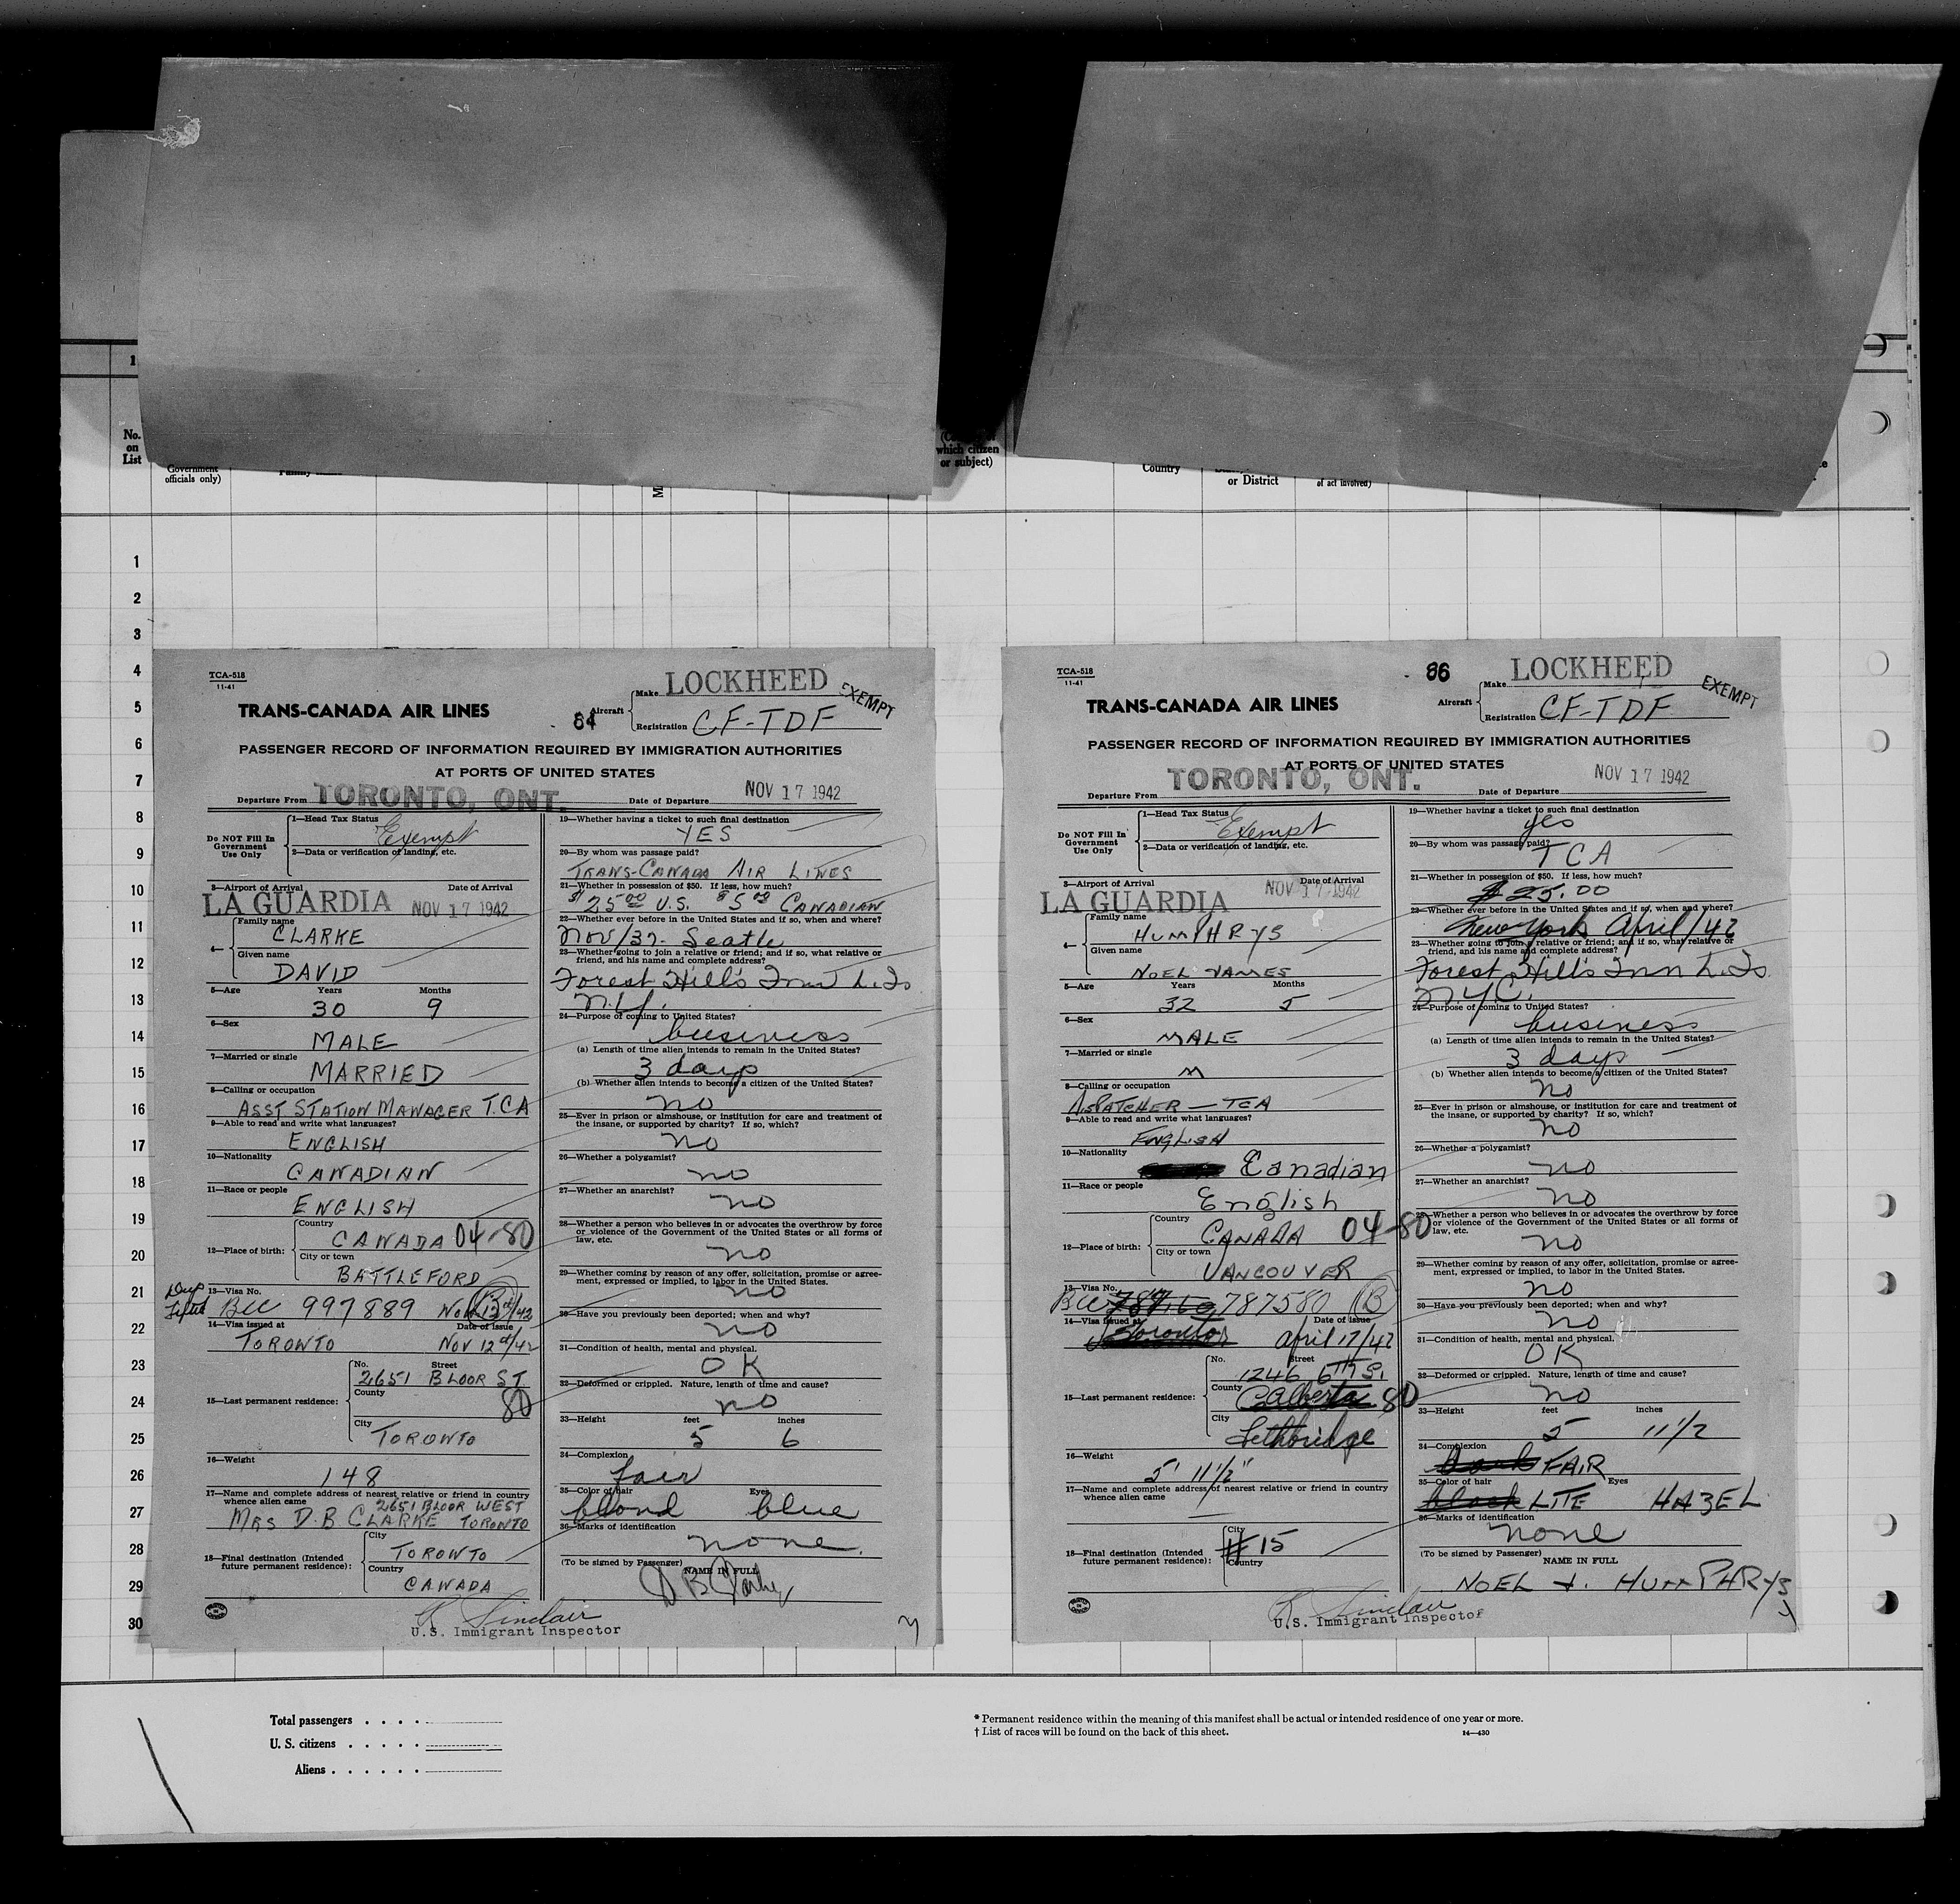 1
No.
on
List
Government
officials only)
which citizen
or subject)
Country
or District
of act involved)
1
2
3
4
5
6
7
8
9
10
11
12
13
14
15
16
17
18
19
20
21
22
23
24
25
26
27
28
29
30
TCA-518
11-41
TRANS-CANADA AIR LINES
84
Aircraft
Make LOCKHEED
Registration CF-TDF
EXEMPT
PASSENGER RECORD OF INFORMATION REQUIRED BY IMMIGRATION AUTHORITIES
AT PORTS OF UNITED STATES
Departure From TORONTO, ONT. Date of Departure NOV 17 1942
Do NOT Fill In
Government
Use Only
1—Head Tax Status
Exempt
2—Data or verification of landing, etc.
3—Airport of Arrival Date of Arrival
LA GUARDIA NOV 17 1942
4—
Family name
CLARKE
Given name
DAVID
5—Age Years Months
30 9
6—Sex
MALE
7—Married or single
MARRIED
8—Calling or occupation
ASST STATION MANAGER T.C A
9—Able to read and write what languages?
ENGLISH
10—Nationality
CANADIAN
11—Race or people
ENGLISH
12—Place of birth:
Country
CANADA 04-80
City or town
BATTLEFORD
13—Visa No.
BCC 997889 Nov 12th/42
14—Visa issued at Date of Issue
TORONTO Nov 12th/42
15—Last permanent residence:
No. Street
2651 BLOOR ST
County
80
City
TORONTO
16—Weight
148
17—Name and complete address of nearest relative or friend in country
whence alien came
2651 BLOOR WEST
MRS D.B CLARKE TORONTO
18—Final destination (Intended
future permanent residence):
City
TORONTO
Country
CANADA
19—Whether having a ticket to such final destination
YES
20—By whom was passage paid?
TRANS-CANADA AIR LINES
21—Whether in possession of $50. If less, how much?
$25.00 U.S. $5.00 CANADIAN
22—Whether ever before in the United States and if so, when and where?
Nov/37- Seatle
23—Whether going to join a relative or friend; and if so, what relative or
friend, and his name and complete address?
Forest Hill's Inn L.Is
N.Y.
24—Purpose of coming to United States?
business
(a) Length of time alien intends to remain in the United States?
3 days
(b) Whether alien intends to become a citizen of the United States?
no
25—Ever in prison or almshouse, or institution for care and treatment of
the insane, or supported by charity? If so, which?
no
26—Whether a polygamist?
no
27—Whether an anarchist?
no
28—Whether a person who believes in or advocates the overthrow by force
or violence of the Government of the United States or all forms of
law, etc.
no
29—Whether coming by reason of any offer, solicitation, promise or agree-
ment, expressed or implied, to labor in the United States.
no
30—Have you previously been deported; when and why?
no
31—Condition of health, mental and physical.
OK
32—Deformed or crippled. Nature, length of time and cause?
no
33—Height feet inches
5 6
34—Complexion
fair
35—Color of hair Eyes
blond blue
36—Marks of identification
none.
(To be signed by Passenger) NAME IN FULL
R Sinclair
U.S. Immigrant Inspector
TCA-518
11-41
TRANS-CANADA AIR LINES
86
Aircraft
Make LOCKHEED
Registration CF-TDF
EXEMPT
PASSENGER RECORD OF INFORMATION REQUIRED BY IMMIGRATION AUTHORITIES
AT PORTS OF UNITED STATES
Departure From TORONTO, ONT. Date of Departure NOV 17 1942
Do NOT Fill In
Government
Use Only
1—Head Tax Status
Exempt
2—Data or verification of landing, etc.
3—Airport of Arrival Date of Arrival
LA GUARDIA NOV 17 1942
4—
Family name
HUMPHRYS
Given name
NOEL JAMES
5—Age Years Months
32 5
6—Sex
MALE
7—Married or single
M
8—Calling or occupation
DISPATCHER — TCA
9—Able to read and write what languages?
ENGLISH
10—Nationality
Canadian
11—Race or people
English
12—Place of birth:
Country
CANADA 04-80
City or town
VANCOUVER
13—Visa No.
BCC 787580 B
14—Visa issued at Date of Issue
Toronto april 17/42
15—Last permanent residence:
No. Street
1246 6TH S.
County
Alberta 80
City
Lethbridge
16—Weight
5' 11½"
17—Name and complete address of nearest relative or friend in country
whence alien came
—
18—Final destination (Intended
future permanent residence):
City
#15
Country
19—Whether having a ticket to such final destination
yes
20—By whom was passage paid?
TCA
21—Whether in possession of $50. If less, how much?
$25.00
22—Whether ever before in the United States and if so, when and where?
New York April/42
23—Whether going to join a relative or friend; and if so, what relative or
friend, and his name and complete address?
Forest Hill's Inn L.Is.
N.Y.C.
24—Purpose of coming to United States?
business
(a) Length of time alien intends to remain in the United States?
3 days
(b) Whether alien intends to become a citizen of the United States?
no
25—Ever in prison or almshouse, or institution for care and treatment of
the insane, or supported by charity? If so, which?
no
26—Whether a polygamist?
no
27—Whether an anarchist?
no
28—Whether a person who believes in or advocates the overthrow by force
or violence of the Government of the United States or all forms of
law, etc.
no
29—Whether coming by reason of any offer, solicitation, promise or agree-
ment, expressed or implied, to labor in the United States.
no
30—Have you previously been deported; when and why?
no
31—Condition of health, mental and physical.
OK
32—Deformed or crippled. Nature, length of time and cause?
no
33—Height feet inches
5 11 1/2
34—Complexion
FAIR
35—Color of hair Eyes
black LITE HAZEL
36—Marks of identification
none
(To be signed by Passenger) NAME IN FULL
NOEL J. HUMPHRYS
R Sinclair
U.S. Immigrant Inspector
Total passengers . . . .
U. S. citizens . . . . .
Aliens . . . . . .
* Permanent residence within the meaning of this manifest shall be actual or intended residence of one year or more.
† List of races will be found on the back of this sheet. 14—430